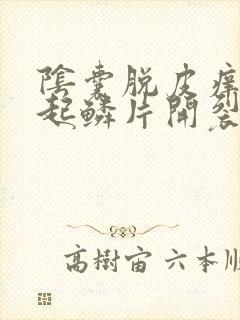 陰囊脱皮痒
起鱗片開裂
高樹宙 六本